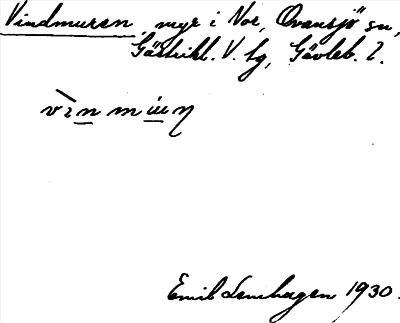 Vindmuren myr i Vor, Ovansjö sn,
Gästrikl. V. tg, Gävleb. l.
vìn mu̇n
Emil Lenhagen 1930.